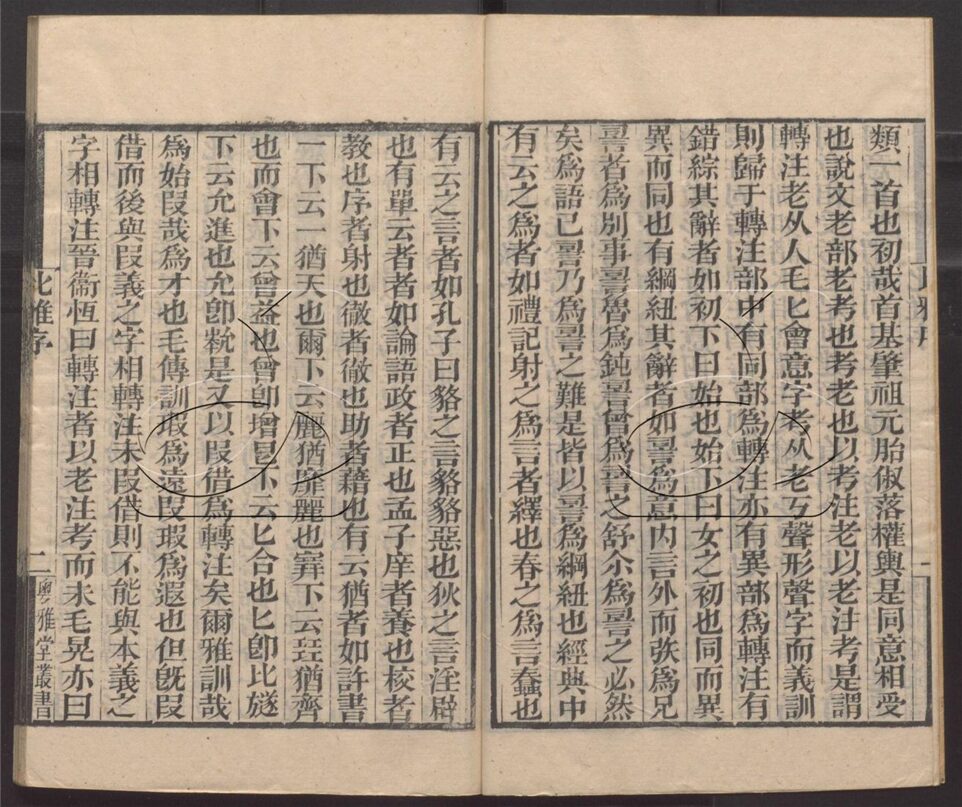 類一首也初哉首基肇祖元胎俶落權輿是同意相受
也說文老部老考也考老也以考注老以老注考是謂
轉注老从人毛匕會意字考从老丂聲形聲字而義訓
則歸于轉注部中有同部為轉注亦有異部為轉注有
錯綜其辭者如初下曰始也始下曰女之初也同而異
異而同也有綱紐其辭者如𠷎為意內言外而矤為兄
𠷎者為別事𠷎魯為鈍𠷎曾為𠷎之舒尒為𠷎之必然
矣為語已𠷎乃為𠷎之難是皆以𠷎為綱紐也經典中
有云之為者如禮記射之為言者繹也春之為言蠢也
有云之言者如孔子曰貉之言貉貉惡也狄之言淫辟
也有單云者者如論語政者正也孟子庠者養也校者
教也序者射也徹者徹也助者藉也有云猶者如許書
一下云一猶天也爾下云麗猶靡麗也㠭下云㠭猶齊
也而會下云曾益也曾即增㫗下云匕合也匕即比㒸
下云允進也允即㽙是又以叚借為轉注矣爾雅訓哉
為始叚哉為才也毛傳訓瑕為遠叚瑕為遐也但旣叚
借而後與叚義之字相轉注未叚借則不能與本義之
字相轉注晉衞恆曰轉注者以老注考而未毛晃亦曰
比雅序
二
粵雅堂叢書